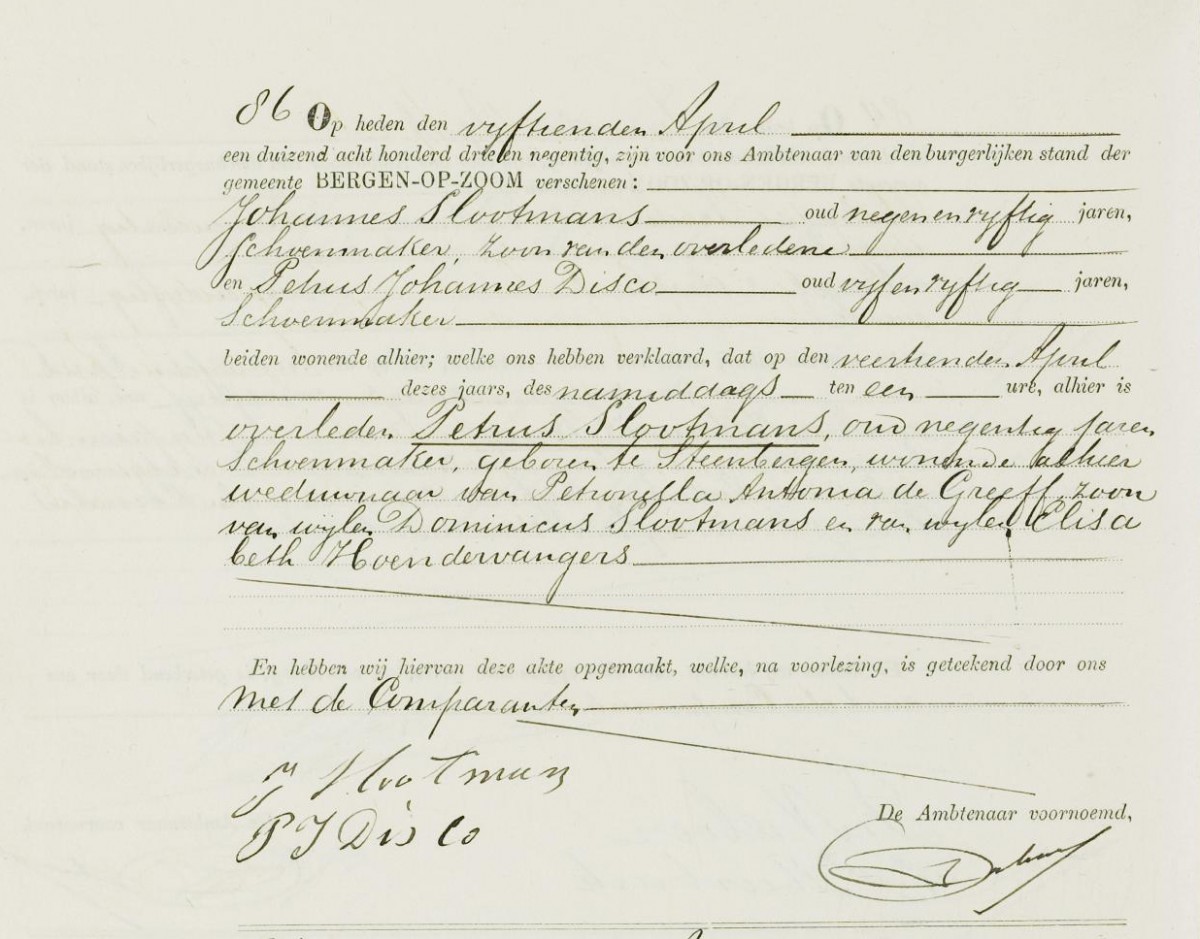 86 Op heden den vyftienden April
een duizend acht honderd drie en negentig, zijn voor ons Ambtenaar van den burgerlijken stand der
gemeente BERGEN-OP-ZOOM verschenen:
Johannes Slootmans oud negen en vyftig jaren,
Schoenmaker, zoon van den overledene
en Petrus Johannes Disco oud vyf en vyftig jaren,
Schoenmaker
beiden wonende alhier; welke ons hebben verklaard, dat op den veertienden April
dezes jaars, des namiddags ten een ure, alhier is
overleden Petrus Slootmans, oud negentig jaren
Schoenmaker, geboren te Steenbergen, wonende alhier
weduwnaar van Petronella Antonia de Greeff, zoon
van wylen Dominicus Slootmans en van wylen Elisa
beth Hoendervangers
En hebben wij hiervan deze akte opgemaakt, welke, na voorlezing, is geteekend door ons
met de Comparanten
J Slootmans
P J Disco
De Ambtenaar voornoemd,